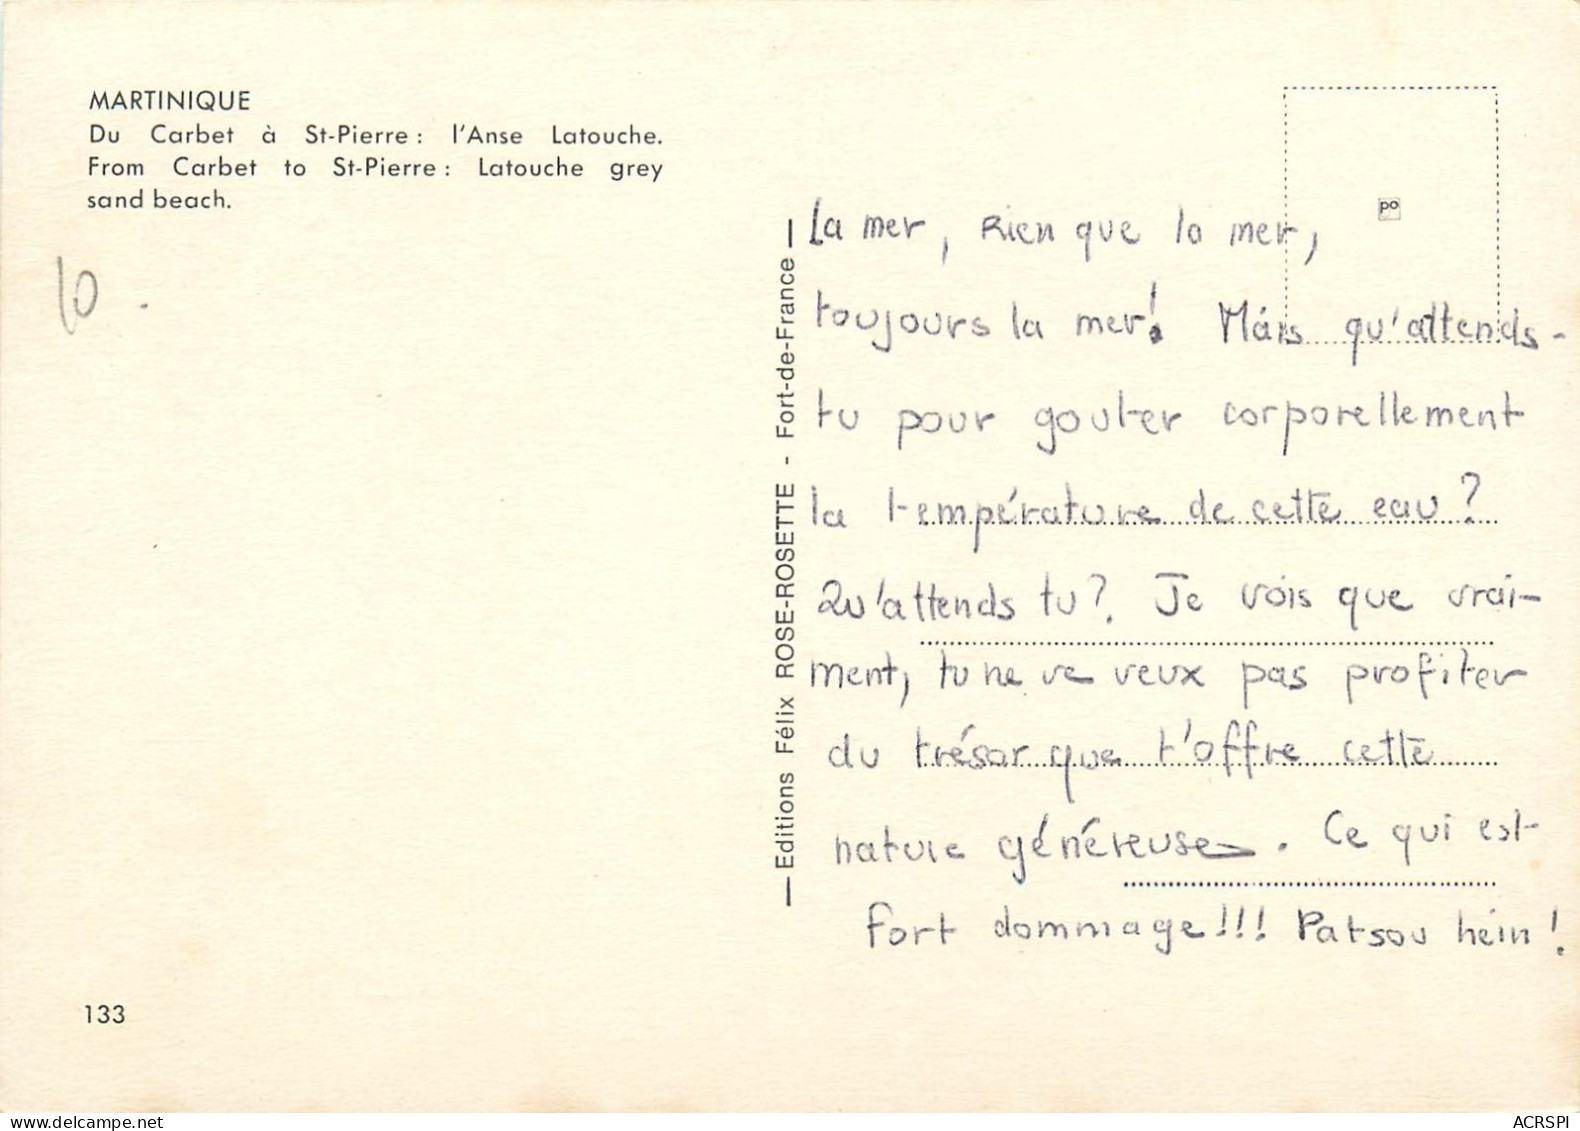 MARTINIQUE
Du Carbet à St-Pierre : l'Anse Latouche.
From Carbet to St-Pierre : Latouche grey
sand beach.
10 -
133
Editions Félix ROSE-ROSETTE - Fort-de-France
po
La mer, Rien que la mer,
toujours la mer! Mais qu'attends-
tu pour gouter corporellement
la température de cette eau ?
Qu'attends tu ? Je vois que vrai-
ment, tu ne ve veux pas profiter
du trésor que t'offre cette
nature généreuse. Ce qui est
fort dommage!!! Patsou hein!
ACRSPI